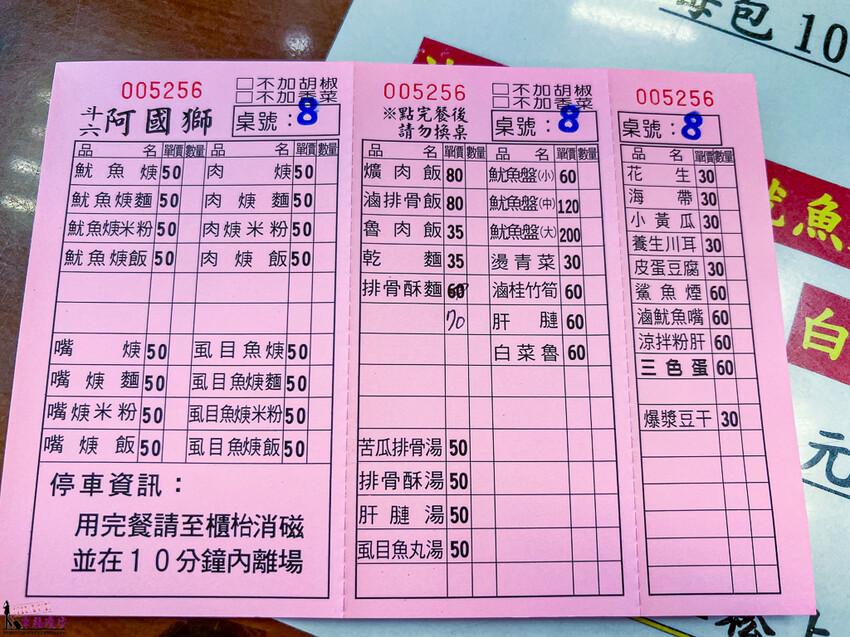 005256
□不加胡椒
□不加香菜
斗六 阿國獅
桌號：8
品名 單價 數量 品名 單價 數量
魷魚焿 50 肉焿 50
魷魚焿麵 50 肉焿麵 50
魷魚焿米粉 50 肉焿米粉 50
魷魚焿飯 50 肉焿飯 50
嘴焿 50 虱目魚焿 50
嘴焿麵 50 虱目魚焿麵 50
嘴焿米粉 50 虱目魚焿米粉 50
嘴焿飯 50 虱目魚焿飯 50
停車資訊：
用完餐請至櫃枱消磁
並在10分鐘內離場
005256
□不加胡椒
□不加香菜
※點完餐後
請勿換桌
桌號：8
品名 單價 數量 品名 單價 數量
爌肉飯 80 魷魚盤(小) 60
滷排骨飯 80 魷魚盤(中) 120
魯肉飯 35 魷魚盤(大) 200
乾麵 35 燙青菜 30
排骨酥麵 60 滷桂竹筍 60
70 肝腱 60
白菜魯 60
苦瓜排骨湯 50
排骨酥湯 50
肝腱湯 50
虱目魚丸湯 50
005256
桌號：8
品名 單價 數量
花生 30
海帶 30
小黃瓜 30
養生川耳 30
皮蛋豆腐 30
鯊魚煙 60
滷魷魚嘴 60
涼拌粉肝 60
三色蛋 60
爆漿豆干 30
包 10
魚
白
元